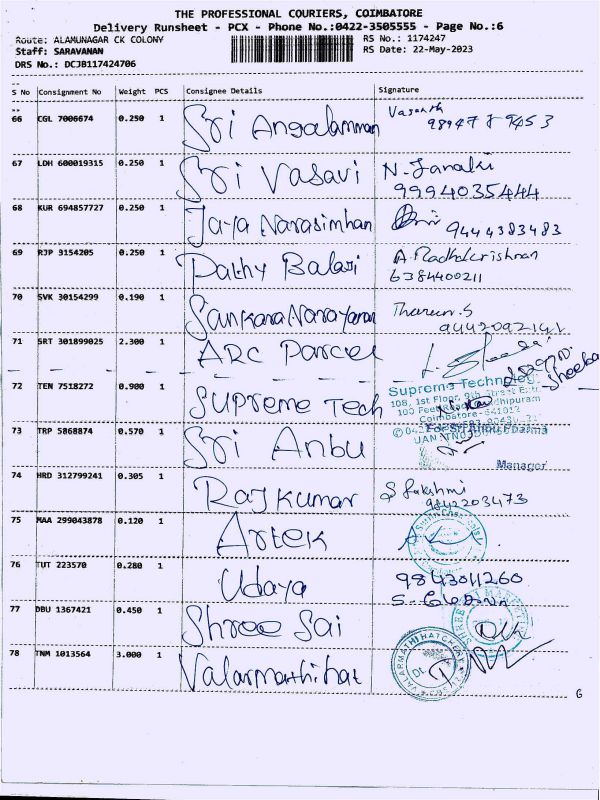 THE PROFESSIONAL COURIERS, COIMBATORE
Delivery Runsheet - PCX - Phone No.:0422-3505555 - Page No.:6
Route: ALAMUNAGAR CK COLONY RS No.: 1174247
Staff: SARAVANAN RS Date: 22-May-2023
DRS No.: DCJB117424706
S No Consignment No Weight PCS Consignee Details Signature
66 CGL 7006674 0.250 1 Sri Angalamman Vasanth
67 LDH 600019315 0.250 1 Sri Vasavi N. Janaki
9994035444
68 KUR 694857727 0.250 1 Jaya Narasimhan 9444383483
69 RJP 3154205 0.250 1 Pathy Balaji A. Radhakrishnan
6384400211
70 SVK 30154299 0.190 1 Sankara Narayanan Tharun.S
9442092141
71 SRT 301899025 2.300 1 ARC Parcel
Sheeba
72 TEN 7518272 0.900 1 Supreme Tech Supreme Technology
108, 1st Floor, 9th Street Extn.
100 Feet Road, Gandhipuram
Coimbatore-641012
73 TRP 5868874 0.570 1 Sri Anbu
Manager
74 HRD 312799241 0.305 1 Rajkumar S Lakshmi
9842203473
75 MAA 299043878 0.120 1 Artek
76 TUT 223570 0.280 1 Udaya 9843011260
77 DBU 1367421 0.450 1 Shree Sai
78 TNM 1013564 3.000 1 Valarmathi hat VALARMATHI HATCHERY
6